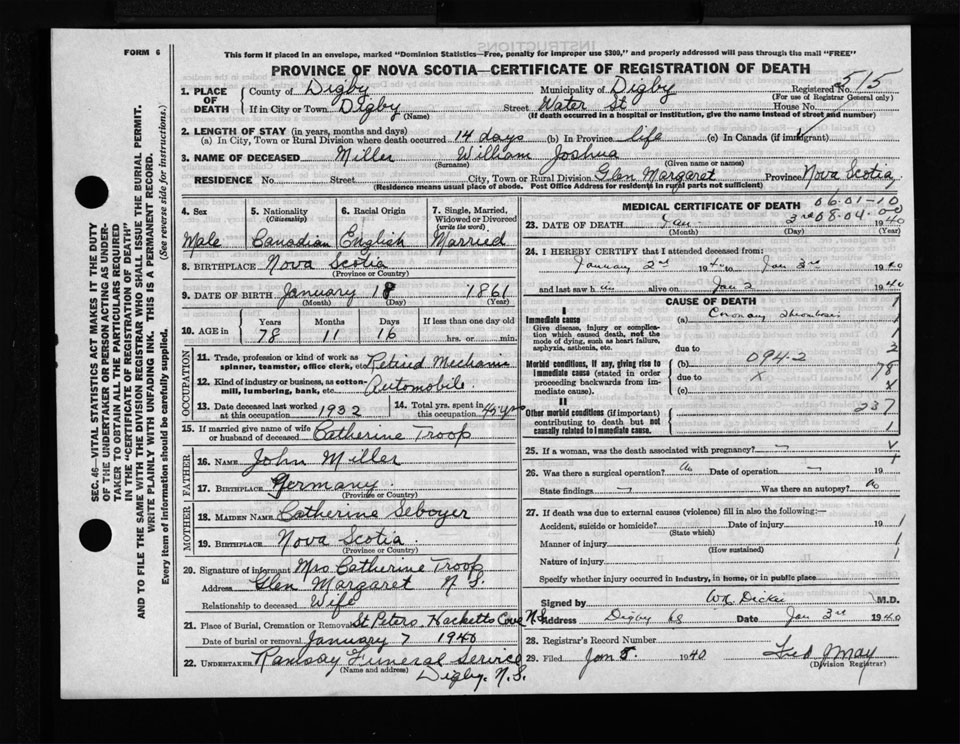 FORM 6
This form if placed in an envelope, marked "Dominion Statistics—Free, penalty for improper use $300," and properly addressed will pass through the mail "FREE"
PROVINCE OF NOVA SCOTIA—CERTIFICATE OF REGISTRATION OF DEATH
515
1. PLACE OF DEATH County of Digby Municipality of Digby Registered No.
(For use of Registrar General only)
If in City or Town Digby Street Water St House No.
(Name) (If death occurred in a hospital or institution, give the name instead of street and number)
2. LENGTH OF STAY (in years, months and days)
(a) In City, Town or Rural Division where death occurred 14 days (b) In Province life (c) In Canada (if immigrant)
3. NAME OF DECEASED Miller William Joshua
(Surname) (Given name or names)
RESIDENCE No. Street City, Town or Rural Division Glen Margaret Province Nova Scotia
(Residence means usual place of abode. Post Office Address for residents in rural parts not sufficient)
4. Sex 5. Nationality (Citizenship) 6. Racial Origin 7. Single, Married, Widowed or Divorced (write the word)
Male Canadian English Married
8. BIRTHPLACE Nova Scotia
(Province or Country)
9. DATE OF BIRTH January 18 1861
(Month) (Day) (Year)
10. AGE in Years Months Days If less than one day old
78 11 16 hrs. or min.
OCCUPATION
11. Trade, profession or kind of work as spinner, teamster, office clerk, etc. Retired Mechanic
12. Kind of industry or business, as cotton-mill, lumbering, bank, etc. Automobile
13. Date deceased last worked at this occupation 1932 14. Total yrs. spent in this occupation 45 yrs
15. If married give name of wife or husband of deceased Catherine Troop
FATHER
16. NAME John Miller
17. BIRTHPLACE Germany
(Province or Country)
MOTHER
18. MAIDEN NAME Catherine Seboyer
19. BIRTHPLACE Nova Scotia
(Province or Country)
20. Signature of informant Mrs Catherine Troop
Address Glen Margaret N S
Relationship to deceased Wife
21. Place of Burial, Cremation or Removal St Peters. Hacketts Cove N.S
Date of burial or removal January 7 1940
22. UNDERTAKER Ramsay Funeral Service
(Name and address) Digby. N.S.
MEDICAL CERTIFICATE OF DEATH
06-01-10
08-04-
23. DATE OF DEATH Jan 3rd 1940
(Month) (Day) (Year)
24. I HEREBY CERTIFY that I attended deceased from:
January 2nd 1940 to Jan 3rd 1940
and last saw him alive on Jan 2 1940
CAUSE OF DEATH
I
Immediate cause (a) Coronary Thrombosis
Give disease, injury or complication which caused death, not the mode of dying, such as heart failure, asphyxia, asthenia, etc.
due to
Morbid conditions, if any, giving rise to immediate cause (stated in order proceeding backwards from immediate cause).
(b) 094-2
due to x
(c)
II
Other morbid conditions (if important) contributing to death but not causally related to immediate cause.
1
1
2
78
x
237
1
25. If a woman, was the death associated with pregnancy? —
26. Was there a surgical operation? No Date of operation — 19
State findings — Was there an autopsy? No
27. If death was due to external causes (violence) fill in also the following:—
Accident, suicide or homicide? Date of injury 19
(State which)
Manner of injury
(How sustained)
Nature of injury
Specify whether injury occurred in industry, in home, or in public place
Signed by M.D.
Address Digby NS Date Jan 3rd 1940
28. Registrar's Record Number
29. Filed Jan 5. 1940
(Division Registrar)
SEC. 46—VITAL STATISTICS ACT MAKES IT THE DUTY
OF THE UNDERTAKER OR PERSON ACTING AS UNDER-
TAKER TO OBTAIN ALL THE PARTICULARS REQUIRED
IN THE "CERTIFICATE OF REGISTRATION OF DEATH"
AND TO FILE THE SAME WITH THE DIVISION REGISTRAR WHO SHALL ISSUE THE BURIAL PERMIT.
WRITE PLAINLY WITH UNFADING INK. THIS IS A PERMANENT RECORD.
Every item of information should be carefully supplied. (See reverse side for instructions.)